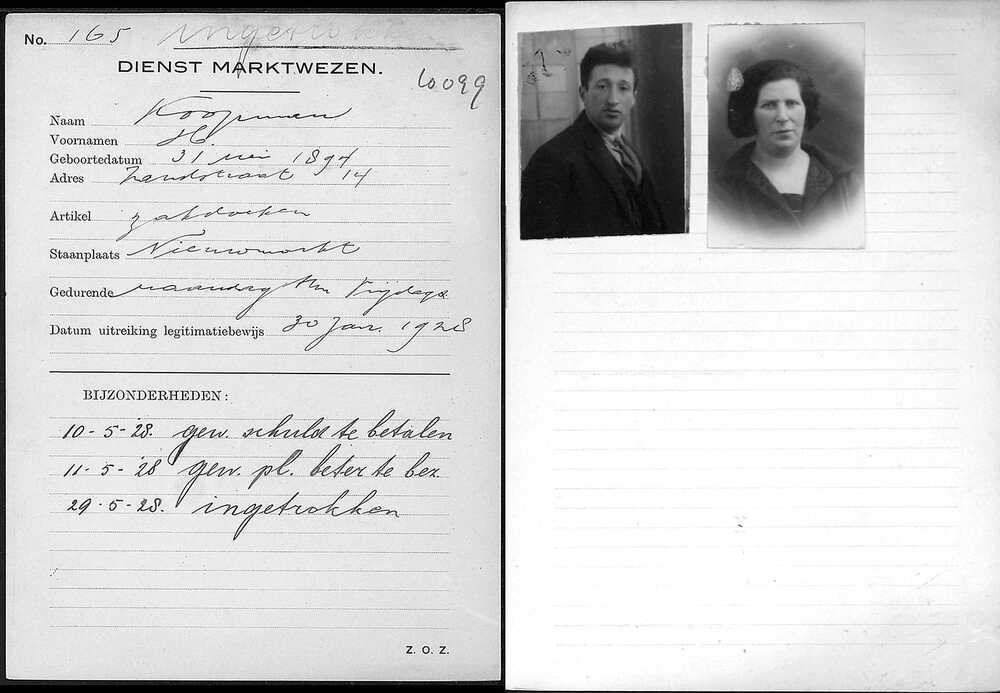 No. 165 ingetrokken
DIENST MARKTWEZEN.
60099
Naam Koopman
Voornamen H.
Geboortedatum 31 mei 1894
Adres Zandstraat 14
Artikel zakdoeken
Staanplaats Nieuwmarkt
Gedurende maandag t/m Vrijdags
Datum uitreiking legitimatiebewijs 30 Jan. 1928
BIJZONDERHEDEN:
10-5-28. gew. schuld te betalen
11-5-28 gew. pl. beter te bez.
29-5-28. ingetrokken
Z. O. Z.